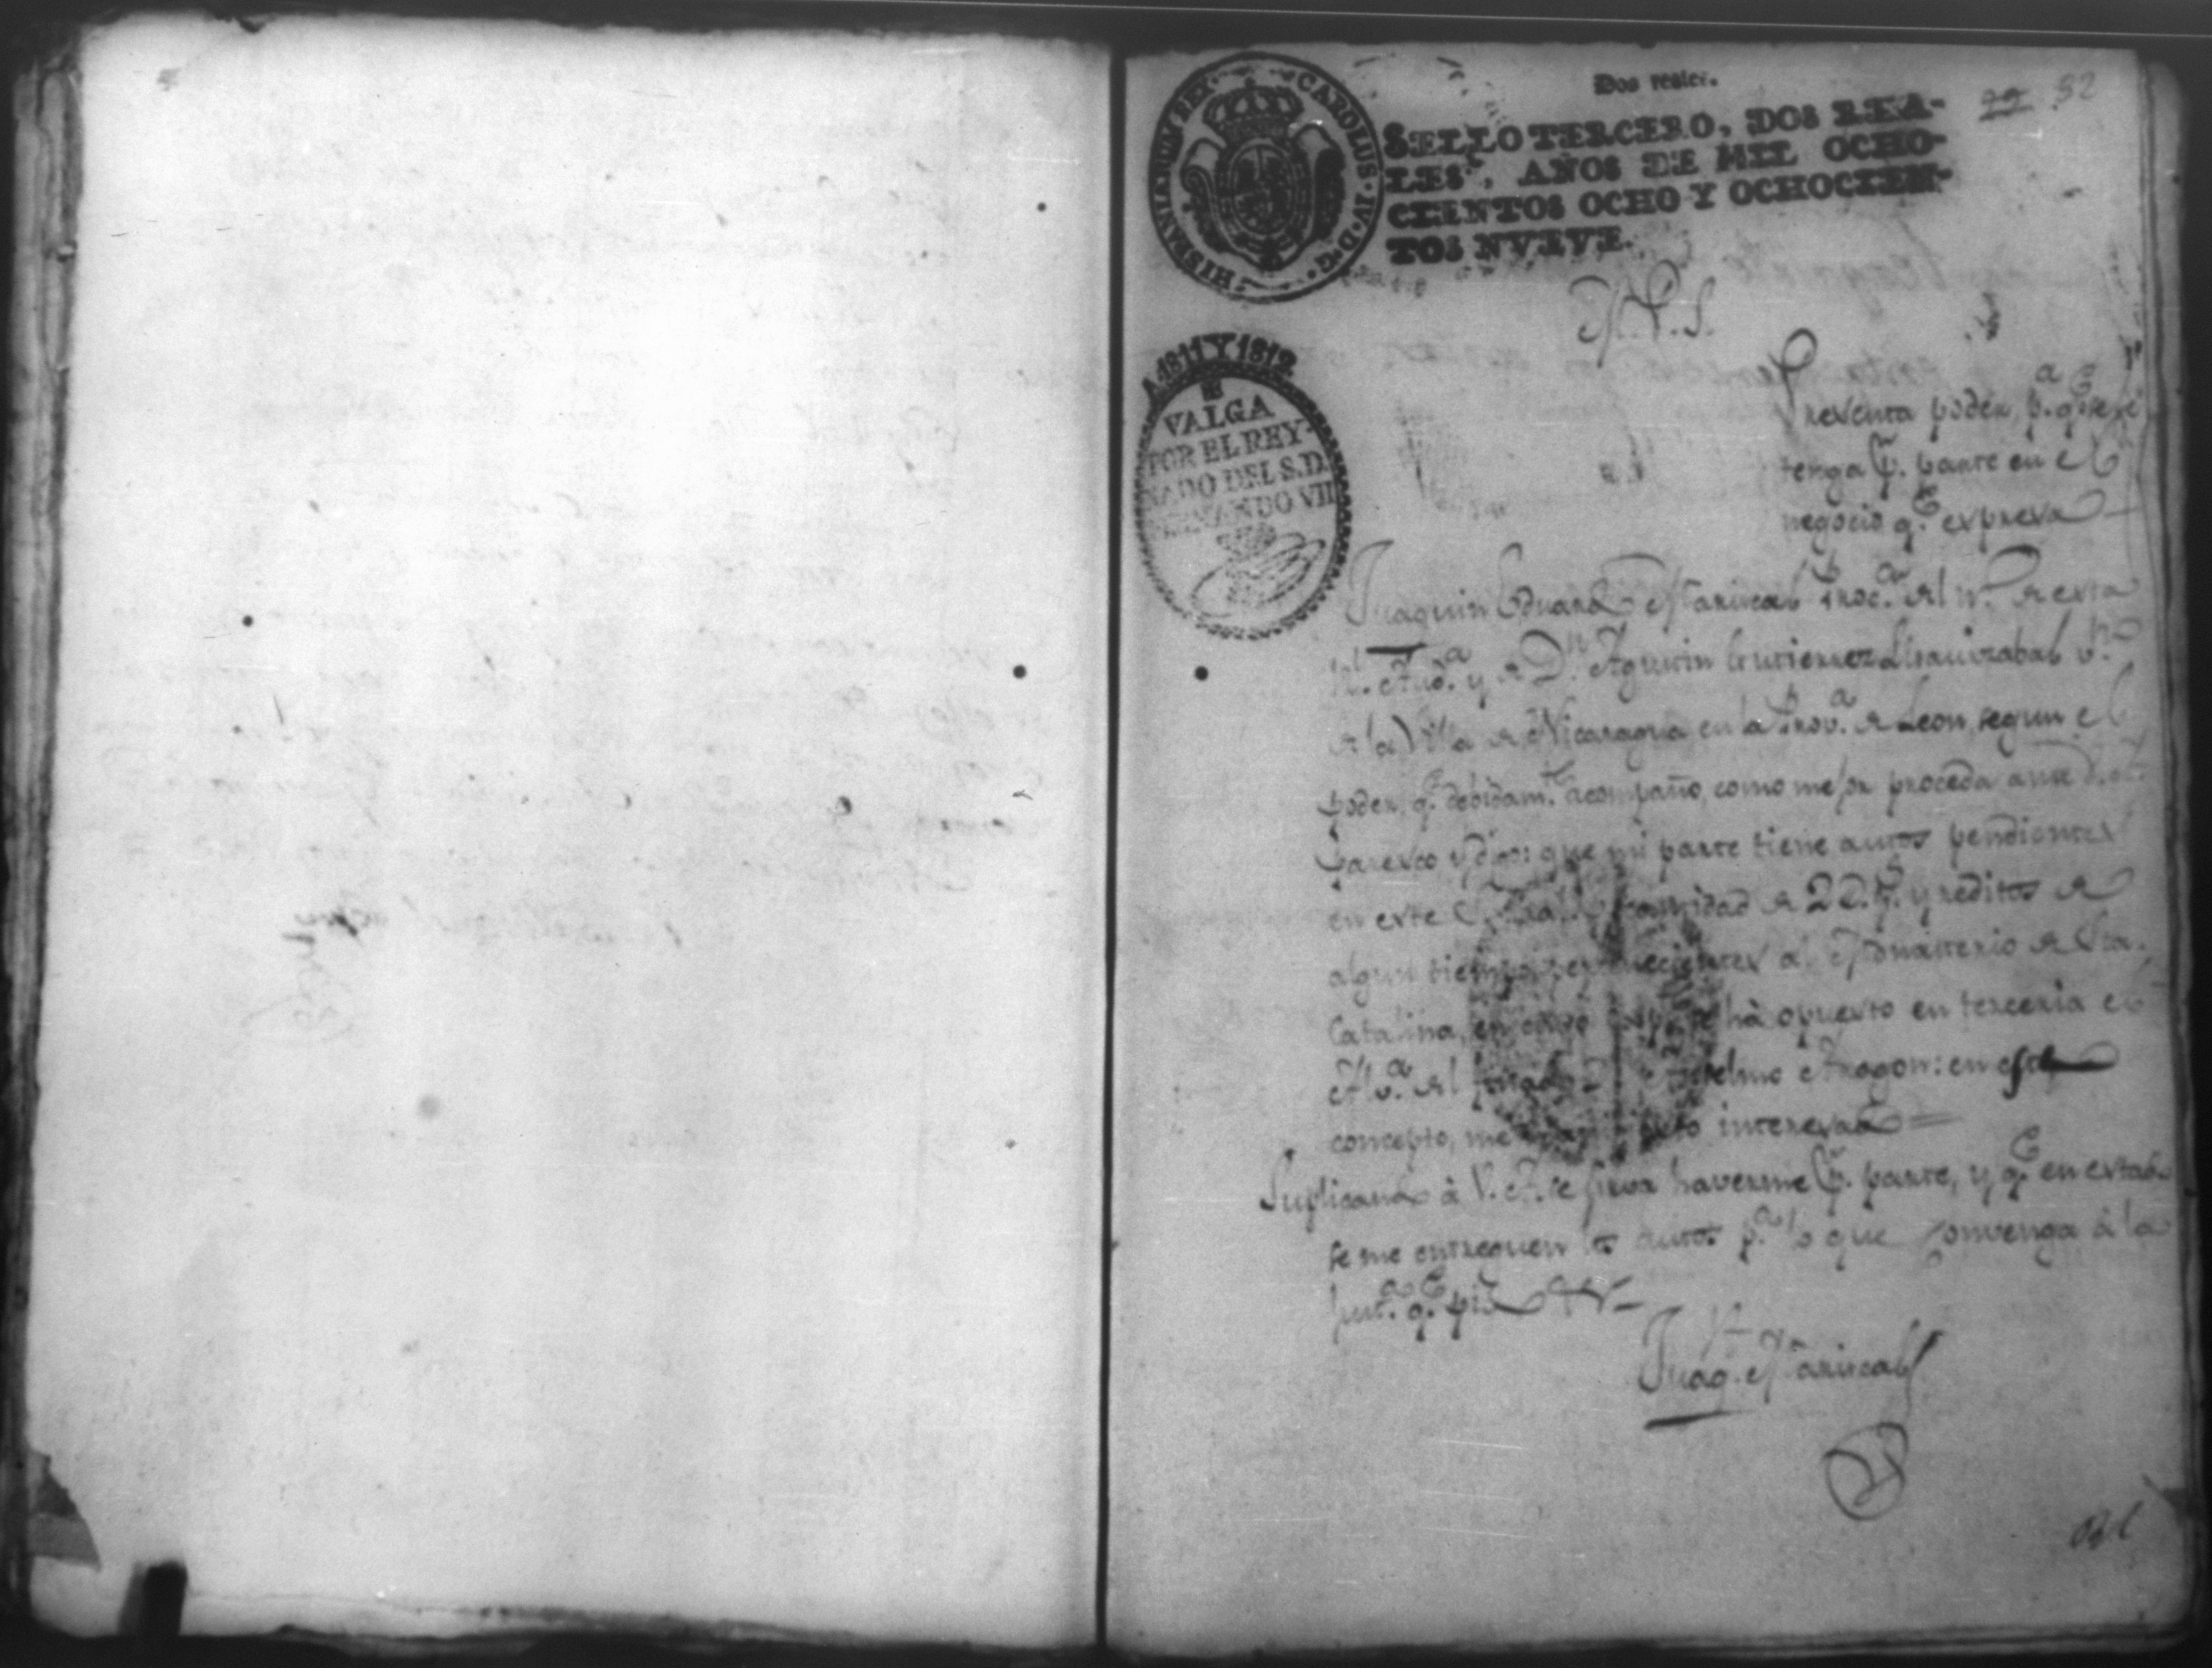 Dos reales.
SELLO TERCERO, DOS REA-
LES, AÑOS DE MIL OCHO-
CIENTOS OCHO Y OCHOCIEN-
TOS NVEVE.
32
HISPANIARUM REX · CAROLUS · IV · D · G ·
M. P. S.
A 1811 Y 1812
VALGA
POR EL REY
NADO DEL S.D.
FERNANDO VII
Presenta poder, p.a q.e se le
tenga p.r parte en el
negocio q.e expresa
Juaquin Eduardo Mariscal Proc.r del n.o de esta
R.l Aud.a y de D.n Agustin Gutierrez Lisaurzabal v.no
de la Villa de Nicaragua en la Prov.a de Leon, segun el
poder, q.e debidam.te acompaño, como mejor proceda ante V. A.
paresco y digo: que mi parte tiene autos pendientes
en este cantidad de 2 D. p.s y reditos de
algun tiempo, pertenecientes al Monasterio de Sta.
Catalina, en cuyo se hà opuesto en terceria el
Alb.a del finado Anselmo Aragon: en este
concepto, me interesado
Suplicando à V. A. se sirva haverme p.r parte, y q.e en estado
se me entreguen los autos p.a lo que convenga à la
just.a q.e pido
Juaq. Mariscal